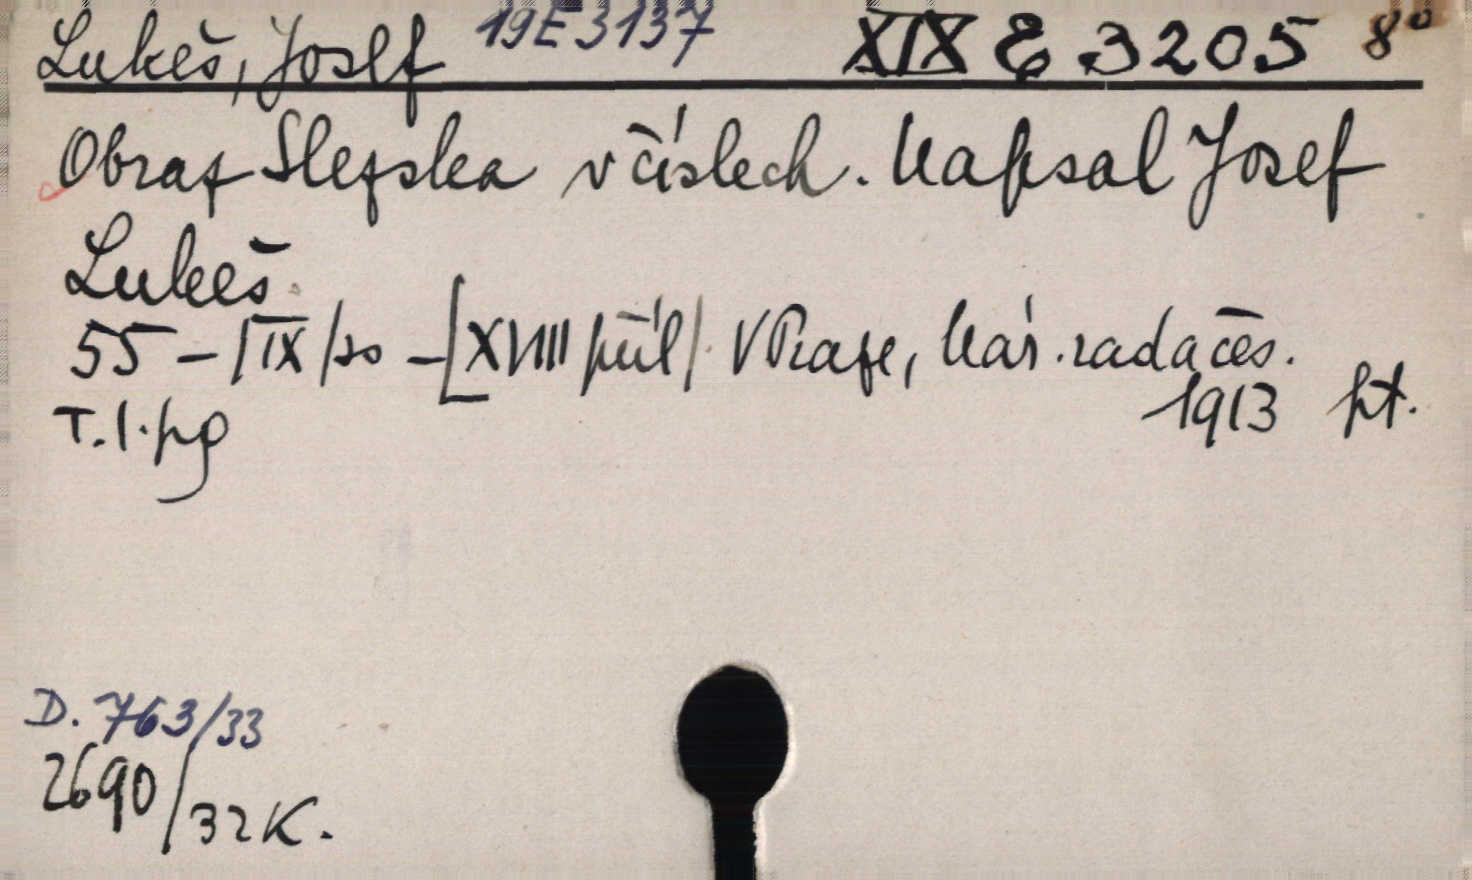 Lukeš, Josef 19E3137 XIX E 3205 8°
Obraz Slezska v číslech. Napsal Josef
Lukeš.
55 – |IX| so – [XVIII příl]. V Praze, Nár. rada čes.
T. l. pg 1913 pt.
D. 763/33
2690/32 K.